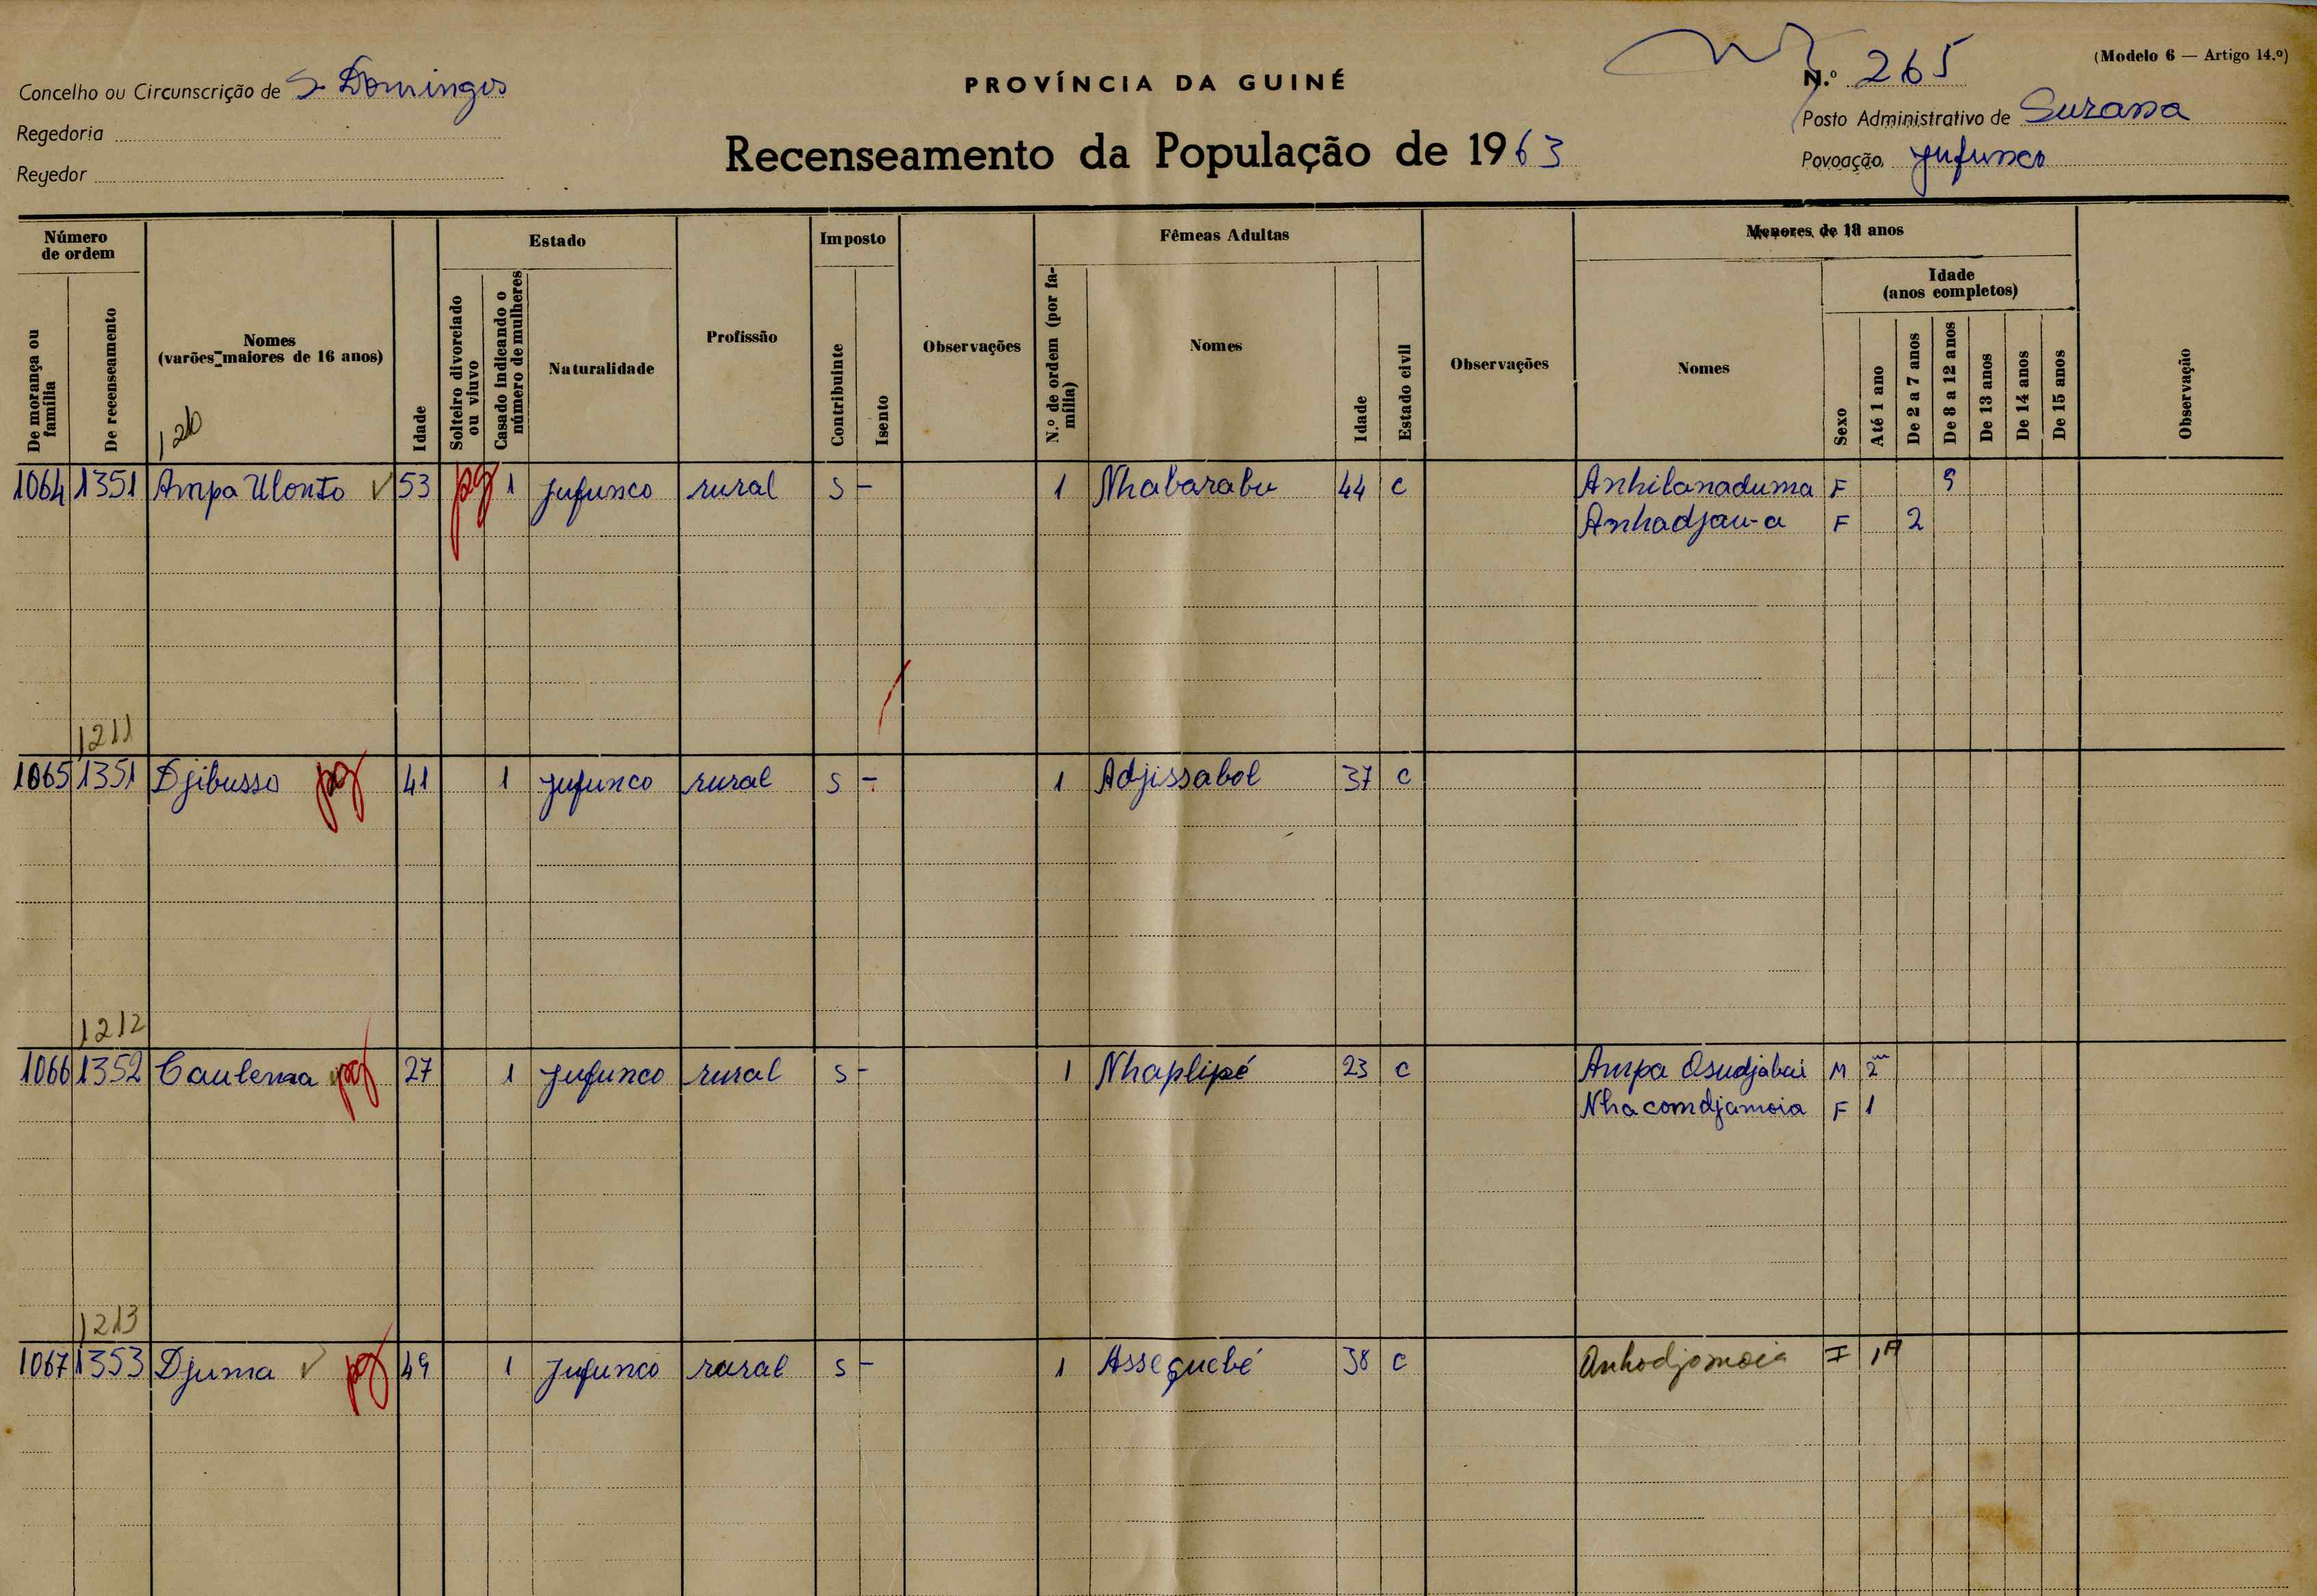 (Modelo 6 — Artigo 14.º)
Concelho ou Circunscrição de S. Domingos
PROVÍNCIA DA GUINÉ
N.º 265
Regedoria
Posto Administrativo de Suzana
Regedor
Recenseamento da População de 1963
Povoação, Jufunco
Número de ordem
De morança ou família
De recenseamento
Nomes
(varões maiores de 16 anos)
Idade
Estado
Solteiro divorciado ou viuvo
Casado indicando o número de mulheres
Naturalidade
Profissão
Imposto
Contribuinte
Isento
Observações
Fêmeas Adultas
N.º de ordem (por família)
Nomes
Idade
Estado civil
Observações
Menores de 18 anos
Nomes
Sexo
Idade
(anos completos)
Até 1 ano
De 2 a 7 anos
De 8 a 12 anos
De 13 anos
De 14 anos
De 15 anos
Observação
1064 1351 Ampa Ulonto 53 pg 1 Jufunco rural S - 1 Nhabarabu 44 C Anhilanaduma F 9
Anhadjau-a F 2
1211
1065 1351 Djibusso pg 41 1 Jufunco rural S - 1 Adjissabol 37 C
1212
1066 1352 Caulema pg 27 1 Jufunco rural S - 1 Nhaplipé 23 C Ampa Osudjabai M 2m
Nhacomdjamoia F 1
1213
1067 1353 Djuma pg 49 1 Jufunco rural S - 1 Asseguebé 38 C Anhodjomoia F 1A